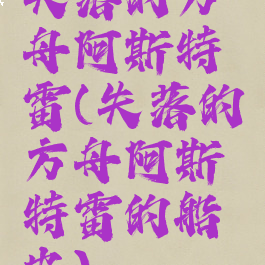 失落的方
舟阿斯特
雷(失落的
方舟阿斯
特雷的船